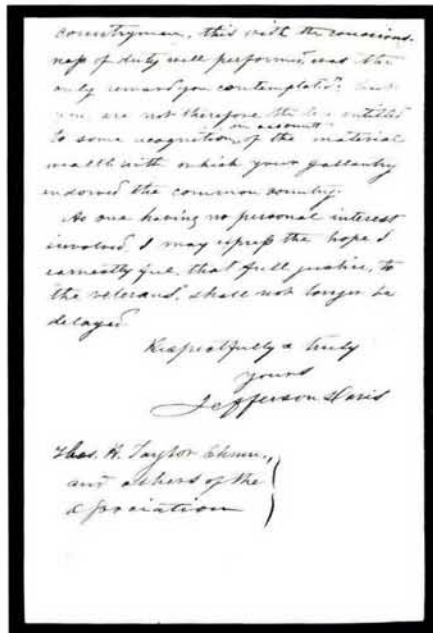 countrymen, this with the conscious-
ness of duty well performed, was the
only reward you contemplated; but
you are not therefore the less entitled
to some recognition on account of the material
wealth with which your gallantry
endowed the common country.
As one having no personal interest
involved, I may express the hope I
earnestly feel, that full justice, to
"the veterans," shall not longer be
delayed.
Respectfully & truly
yours
Jefferson Davis
Thos. H. Taylor Chmn.,
and others of the
Association